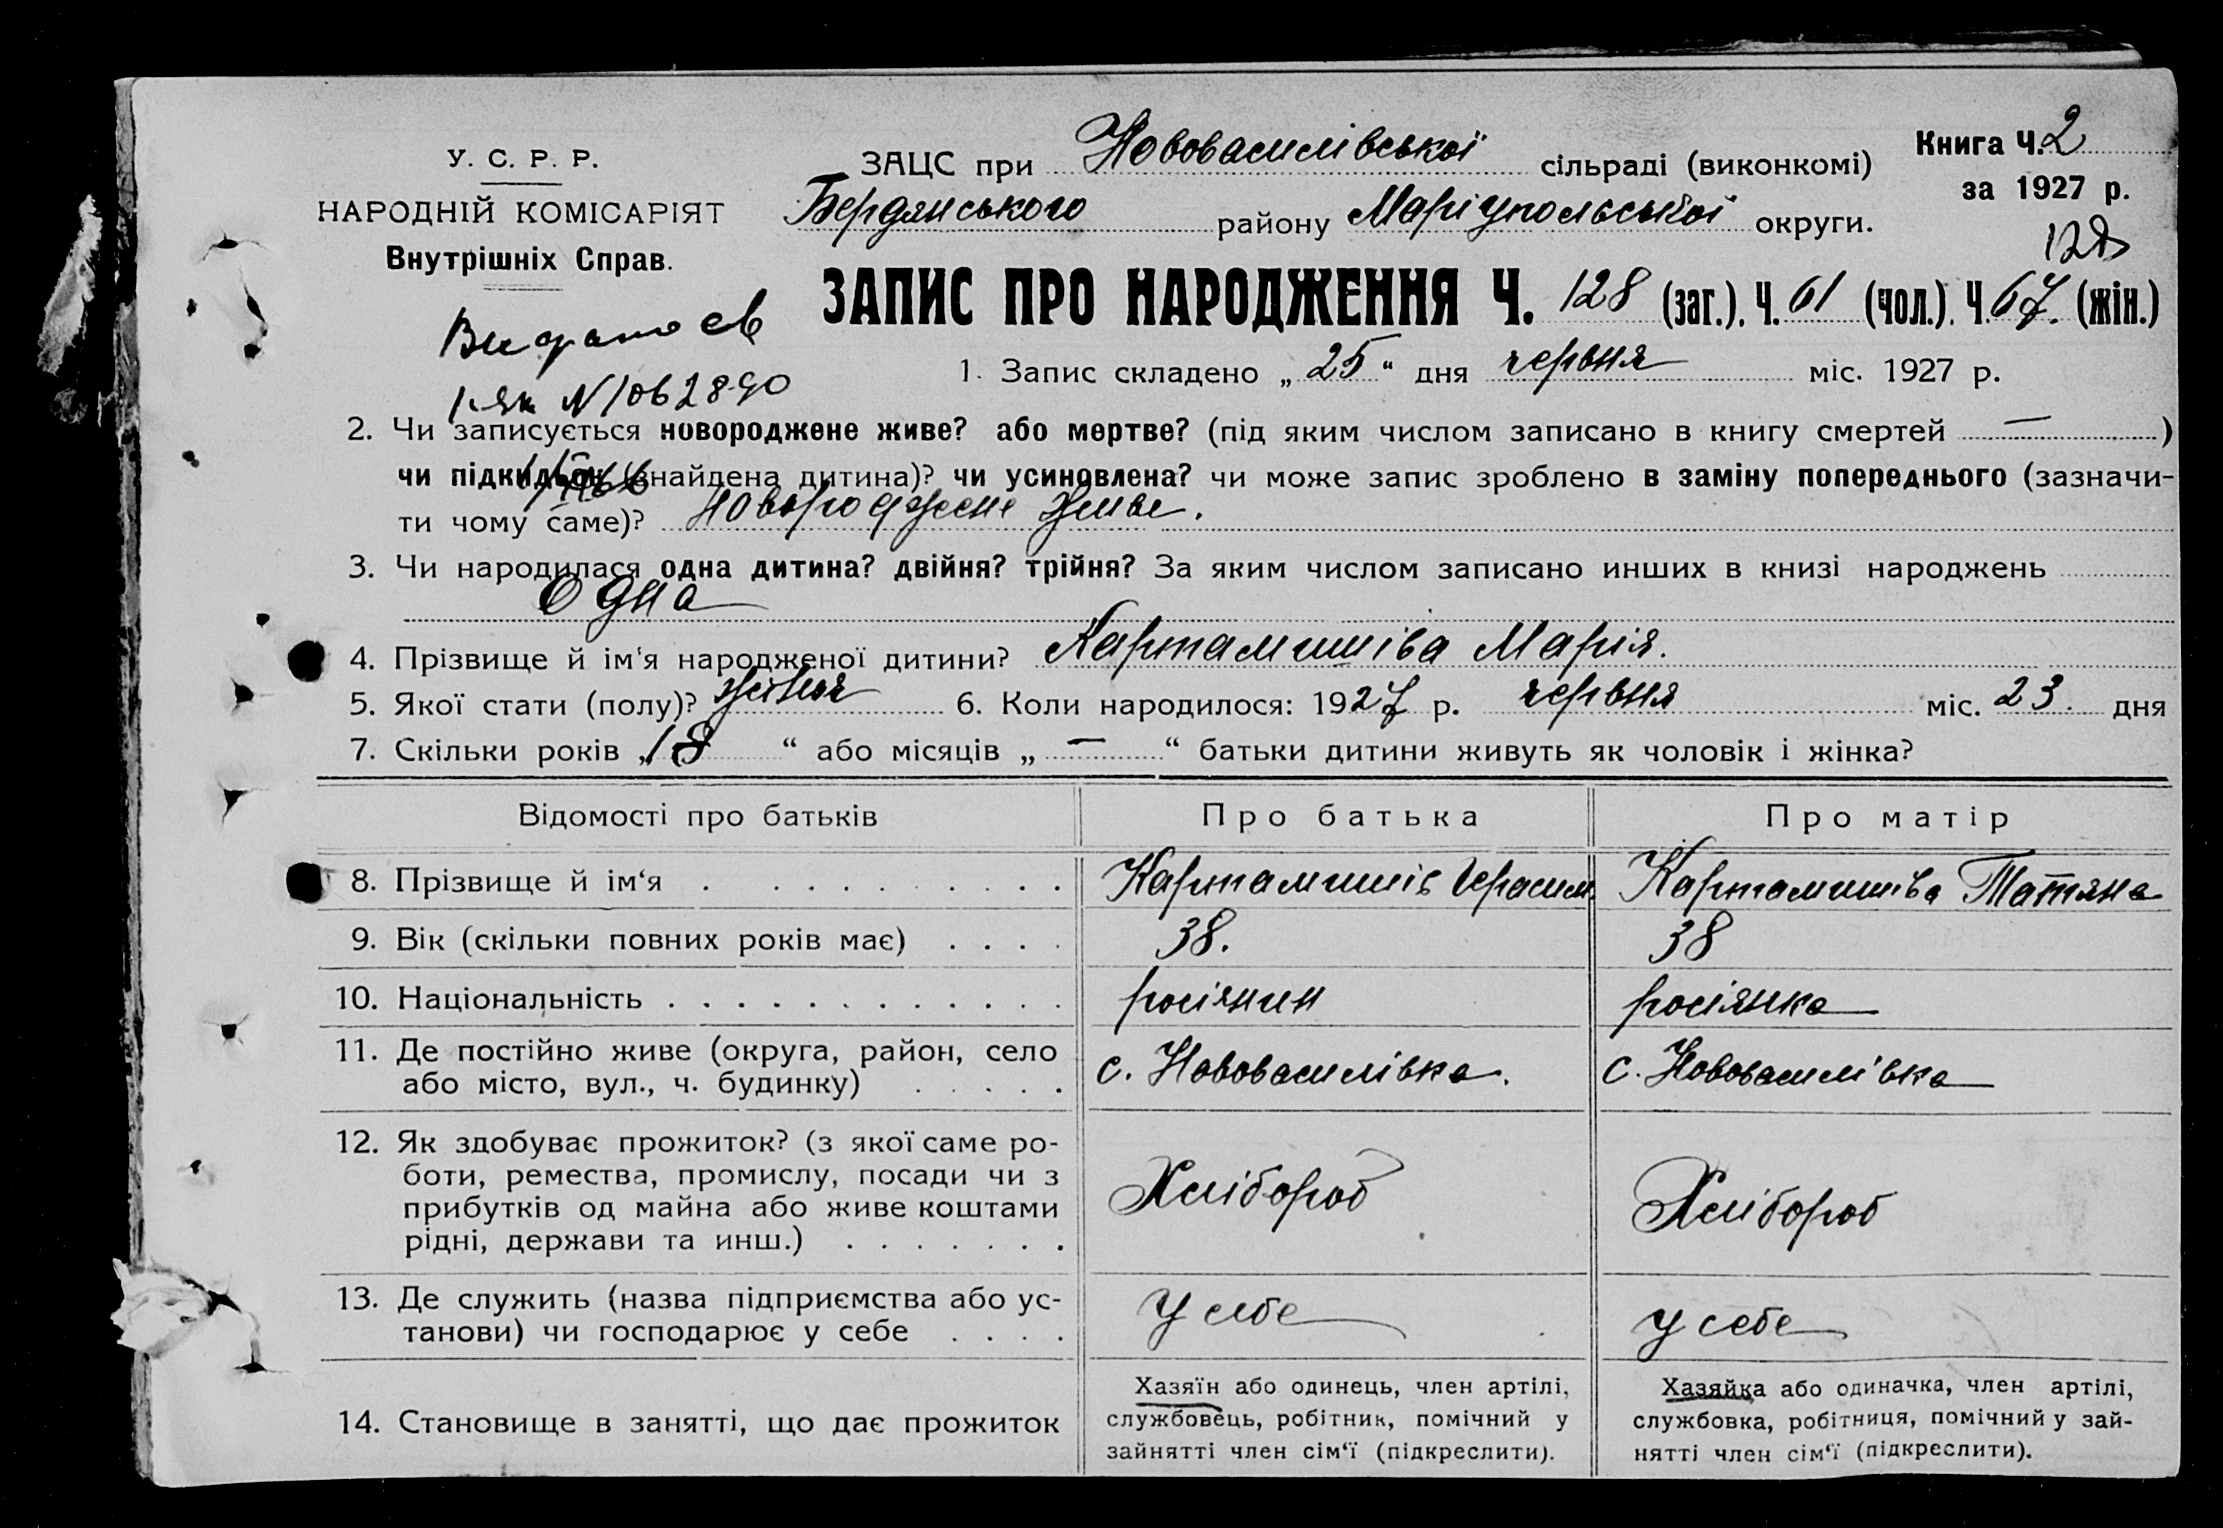 У. С. Р. Р.
НАРОДНІЙ КОМІСАРІЯТ
Внутрішніх Справ.
ЗАЦС при Нововасилівської сільраді (виконкомі)
Книга Ч. 2
за 1927 р.
Бердянського району Маріупольської округи.
128
ЗАПИС ПРО НАРОДЖЕННЯ Ч. 128 (заг.). Ч. 61 (чол.). Ч. 67. (жін.)
Видано св
N 1062890
1. Запис складено „25“ дня червня міс. 1927 р.
2. Чи записується новороджене живе? або мертве? (під яким числом записано в книгу смертей — )
чи підкидьок (знайдена дитина)? чи усиновлена? чи може запис зроблено в заміну попереднього (зазначи-
ти чому саме)? Новороджене живе.
3. Чи народилася одна дитина? двійня? трійня? За яким числом записано инших в книзі народжень
Одна
4. Прізвище й ім'я народженої дитини? Картамишіва Марія.
5. Якої стати (полу)? жіноч 6. Коли народилося: 1927 р. червня міс. 23. дня
7. Скільки років „18“ або місяців „—“ батьки дитини живуть як чоловік і жінка?
Відомості про батьків Про батька Про матір
8. Прізвище й ім‘я Картамишів Герасим. Картамишіва Татяна
9. Вік (скільки повних років має) 38. 38
10. Національність росіянин росіянка
11. Де постійно живе (округа, район, село
або місто, вул., ч. будинку) с. Нововасилівка. с. Нововасилівка
12. Як здобуває прожиток? (з якої саме ро-
боти, ремества, промислу, посади чи з
прибутків од майна або живе коштами
рідні, держави та инш.) Хлібороб Хлібороб
13. Де служить (назва підприємства або ус-
танови) чи господарює у себе У себе у себе
14. Становище в занятті, що дає прожиток
Хазяїн або одинець, член артілі,
службовець, робітник, помічний у
зайнятті член сім‘ї (підкреслити).
Хазяйка або одиначка, член артілі,
службовка, робітниця, помічний у зай-
нятті член сім‘ї (підкреслити).